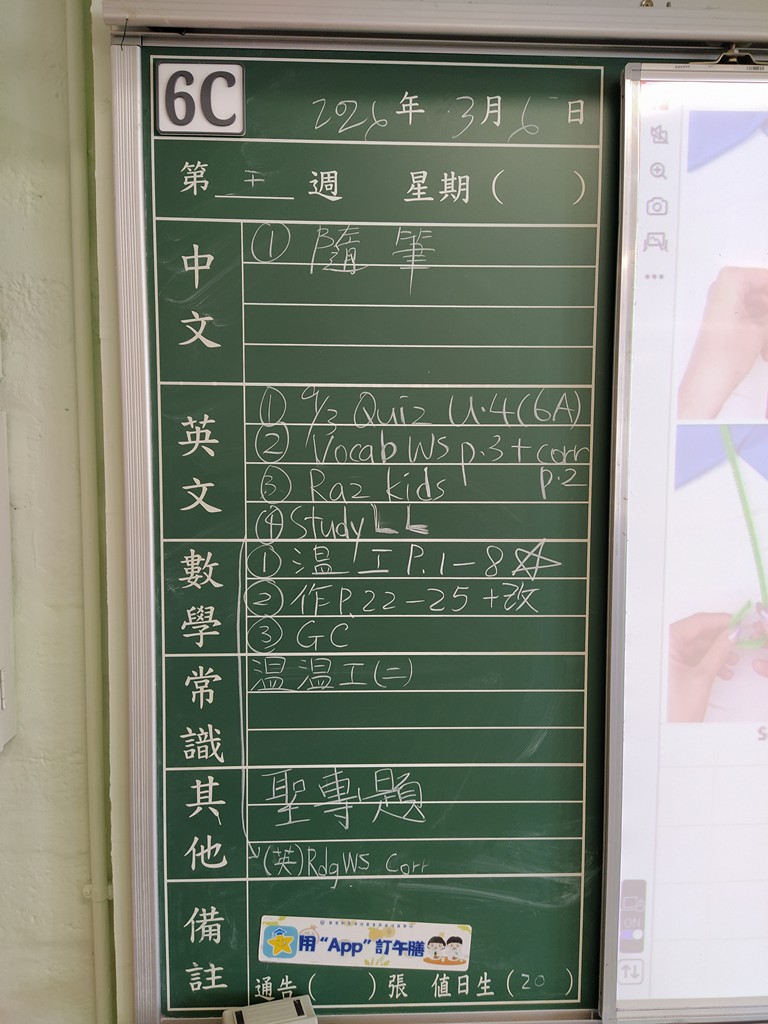 6C
2026年 3月 6日
第 五 週 星期( )
中文
① 隨筆
英文
① 9/3 Quiz U.4 (6A)
② Vocab WS p.3 + corr p.2
③ Raz kids
④ Study LL
數學
① 溫工 P.1-8 ☆
② 作 P.22-25 + 改
③ GC
常識
溫溫工(二)
其他
聖專題
(英) Rdg WS corr
備註
用“App”訂午膳
通告( )張 值日生(20)
ON